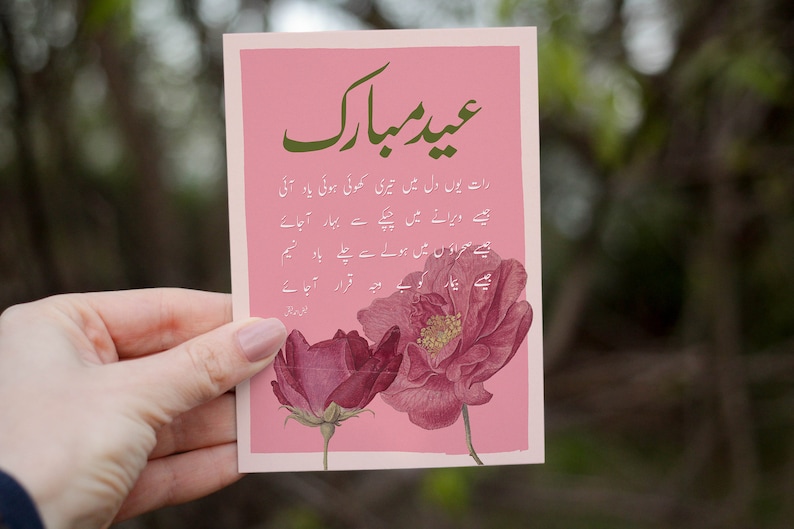 عید مبارک
رات یوں دل میں تیری کھوئی ہوئی یاد آئی
جیسے ویرانے میں چپکے سے بہار آجائے
جیسے صحراؤں میں ہولے سے چلے باد نسیم
جیسے بیمار کو بے وجہ قرار آجائے
فیض احمد فیض